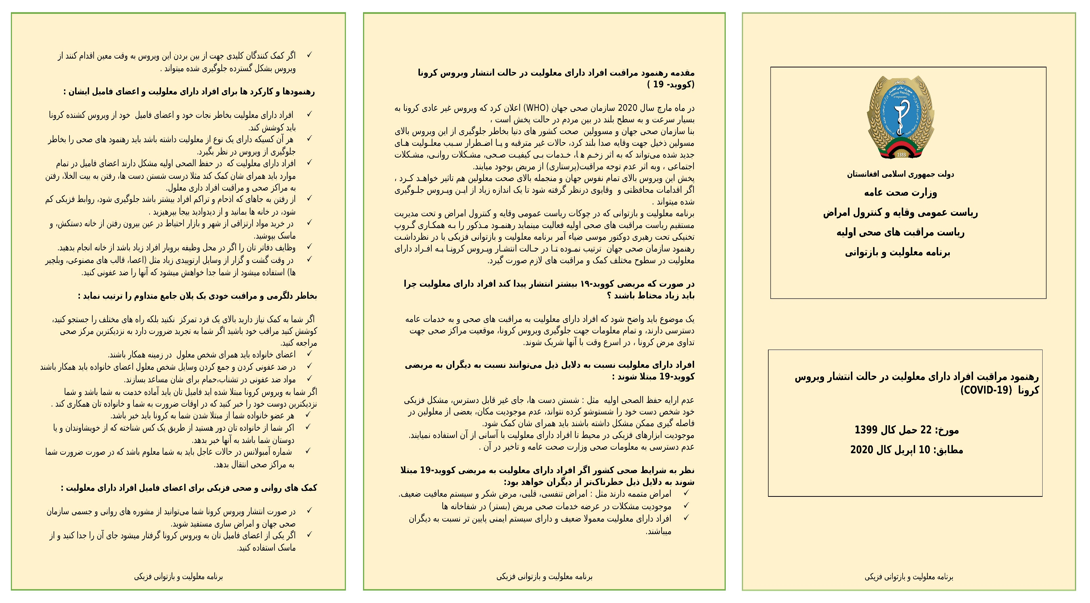 دولت جمهوری اسلامی افغانستان
وزارت صحت عامه
ریاست عمومی وقایه و کنترول امراض
ریاست مراقبت های صحی اولیه
برنامه معلولیت و بازتوانی
رهنمود مراقبت افراد دارای معلولیت در حالت انتشار ویروس
کرونا (COVID-19)
مورخ: 22 حمل کال 1399
مطابق: 10 اپریل کال 2020
برنامه معلولیت و بازتوانی فزیکی
مقدمه رهنمود مراقبت افراد دارای معلولیت در حالت انتشار ویروس کرونا
(کووید- 19 )
در ماه مارچ سال 2020 سازمان صحی جهان (WHO) اعلان کرد که ویروس غیر عادی کرونا به
بسیار سرعت و به سطح بلند در بین مردم در حالت پخش است ،
بنا سازمان صحی جهان و مسوولین صحت کشور های دنیا بخاطر جلوگیری از این ویروس بالای
مسولین ذخیل جهت وقایه صدا بلند کرد، حالات غیر مترقبه و یا اضطرار سبب معلولیت های
جدید شده می‌تواند که به اثر زخم ها، خدمات بی کیفیت صحی، مشکلات روانی، مشکلات
اجتماعی ، وبه اثر عدم توجه مراقبت(پرستاری) از مریض بوجود میایند.
پخش این ویروس بالای تمام نفوس جهان و منجمله بالای صحت معلولین هم تاثیر خواهد کرد ،
اگر اقدامات محافظتی و وقایوی درنظر گرفته شود تا یک اندازه زیاد از این ویروس جلوگیری
شده میتواند .
برنامه معلولیت و بازتوانی که در چوکات ریاست عمومی وقایه و کنترول امراض و تحت مدیریت
مستقیم ریاست مراقبت های صحی اولیه فعالیت مینماید رهنمود مذکور را به همکاری گروپ
تخنیکی تحت رهبری دوکتور موسی ضیاء آمر برنامه معلولیت و بازتوانی فزیکی با در نظرداشت
رهنمود سازمان صحی جهان ترتیب نموده تا در حالت انتشار ویروس کرونا به افراد دارای
معلولیت در سطوح مختلف کمک و مراقبت های لازم صورت گیرد.
در صورت که مریضی کووید-۱۹ بیشتر انتشار پیدا کند افراد دارای معلولیت چرا
باید زیاد محتاط باشند ؟
یک موضوع باید واضح شود که افراد دارای معلولیت به مراقبت های صحی و به خدمات عامه
دسترسی دارند، و تمام معلومات جهت جلوگیری ویروس کرونا، موقعیت مراکز صحی جهت
تداوی مرض کرونا ، در اسرع وقت با آنها شریک شوند.
افراد دارای معلولیت نسبت به دلایل ذیل می‌توانند نسبت به دیگران به مریضی
کووید-19 مبتلا شوند :
عدم ارایه حفظ الصحی اولیه مثل : شستن دست ها، جای غیر قابل دسترس، مشکل فزیکی
خود شخص دست خود را شستوشو کرده نتواند، عدم موجودیت مکان، بعضی از معلولین در
فاصله گیری ممکن مشکل داشته باشند باید همرای شان کمک شود.
موجودیت ابزارهای فزیکی در محیط تا افراد دارای معلولیت با آسانی از آن استفاده نمایند.
عدم دسترسی به معلومات صحی وزارت صحت عامه و تاخیر در آن .
نظر به شرایط صحی کشور اگر افراد دارای معلولیت به مریضی کووید-19 مبتلا
شوند به دلایل ذیل خطرناک‌تر از دیگران خواهد بود:
✓ امراض متممه دارند مثل : امراض تنفسی، قلبی، مرض شکر و سیستم معافیت ضعیف.
✓ موجودیت مشکلات در عرضه خدمات صحی مریض (بستر) در شفاخانه ها
✓ افراد دارای معلولیت معمولا ضعیف و دارای سیستم ایمنی پایین تر نسبت به دیگران
میباشند.
برنامه معلولیت و بازتوانی فزیکی
✓ اگر کمک کنندگان کلیدی جهت از بین بردن این ویروس به وقت معین اقدام کنند از
ویروس بشکل گسترده جلوگیری شده میتواند .
رهنمودها و کارکرد ها برای افراد دارای معلولیت و اعضای فامیل ایشان :
✓ افراد دارای معلولیت بخاطر نجات خود و اعضای فامیل خود از ویروس کشنده کرونا
باید کوشش کند.
✓ هر آن کسیکه دارای یک نوع از معلولیت داشته باشد باید رهنمود های صحی را بخاطر
جلوگیری از ویروس در نظر بگیرد.
✓ افراد دارای معلولیت که در حفظ الصحی اولیه مشکل دارند اعضای فامیل در تمام
موارد باید همرای شان کمک کند مثلا درست شستن دست ها، رفتن به بیت الخلا، رفتن
به مراکز صحی و مراقبت افراد داری معلول.
✓ از رفتن به جاهای که اذدحام و تراکم افراد بیشتر باشد جلوگیری شود، روابط فزیکی کم
شود، در خانه ها بمانید و از دیدوادید بیجا بپرهیزید .
✓ در خرید مواد ارتزاقی از شهر و بازار احتیاط در عین بیرون رفتن از خانه دستکش، و
ماسک بپوشید.
✓ وظایف دفاتر تان را اگر در محل وظیفه بروبار افراد زیاد باشد از خانه انجام بدهید.
✓ در وقت گشت و گزار از وسایل ارتوپیدی زیاد مثل (اعصا، قالب های مصنوعی، ویلچیر
ها) استفاده میشود از شما جدا خواهش میشود که آنها را ضد عفونی کنید.
بخاطر دلگرمی و مراقبت خودی یک پلان جامع متداوم را ترتیب نماید :
اگر شما به کمک نیاز دارید بالای یک فرد تمرکز نکنید بلکه راه های مختلف را جستجو کنید،
کوشش کنید مراقب خود باشید اگر شما به تجرید ضرورت دارد به نزدیکترین مرکز صحی
مراجعه کنید.
✓ اعضای خانواده باید همرای شخص معلول در زمینه همکار باشند.
✓ در ضد عفونی کردن و جمع کردن وسایل شخص معلول اعضای خانواده باید همکار باشند
✓ مواد ضد عفونی در تشناب،حمام برای شان مساعد بسازند.
اگر شما به ویروس کرونا مبتلا شده اید فامیل تان باید آماده خدمت به شما باشد و شما
نزدیکترین دوست خود را خبر کنید که در اوقات ضرورت به شما و خانواده تان همکاری کند .
✓ هر عضو خانواده شما از مبتلا شدن شما به کرونا باید خبر باشد.
✓ اکر شما از خانواده تان دور هستید از طریق یک کس شناخته که از خویشاوندان و یا
دوستان شما باشد به آنها خبر بدهد.
✓ شماره آمبولانس در حالات عاجل باید به شما معلوم باشد که در صورت ضرورت شما
به مراکز صحی انتقال بدهد.
کمک های روانی و صحی فزیکی برای اعضای فامیل افراد دارای معلولیت :
✓ در صورت انتشار ویروس کرونا شما می‌توانید از مشوره های روانی و جسمی سازمان
صحی جهان و امراض ساری مستفید شوید.
✓ اگر یکی از اعضای فامیل تان به ویروس کرونا گرفتار میشود جای آن را جدا کنید و از
ماسک استفاده کنید.
برنامه معلولیت و بازتوانی فزیکی